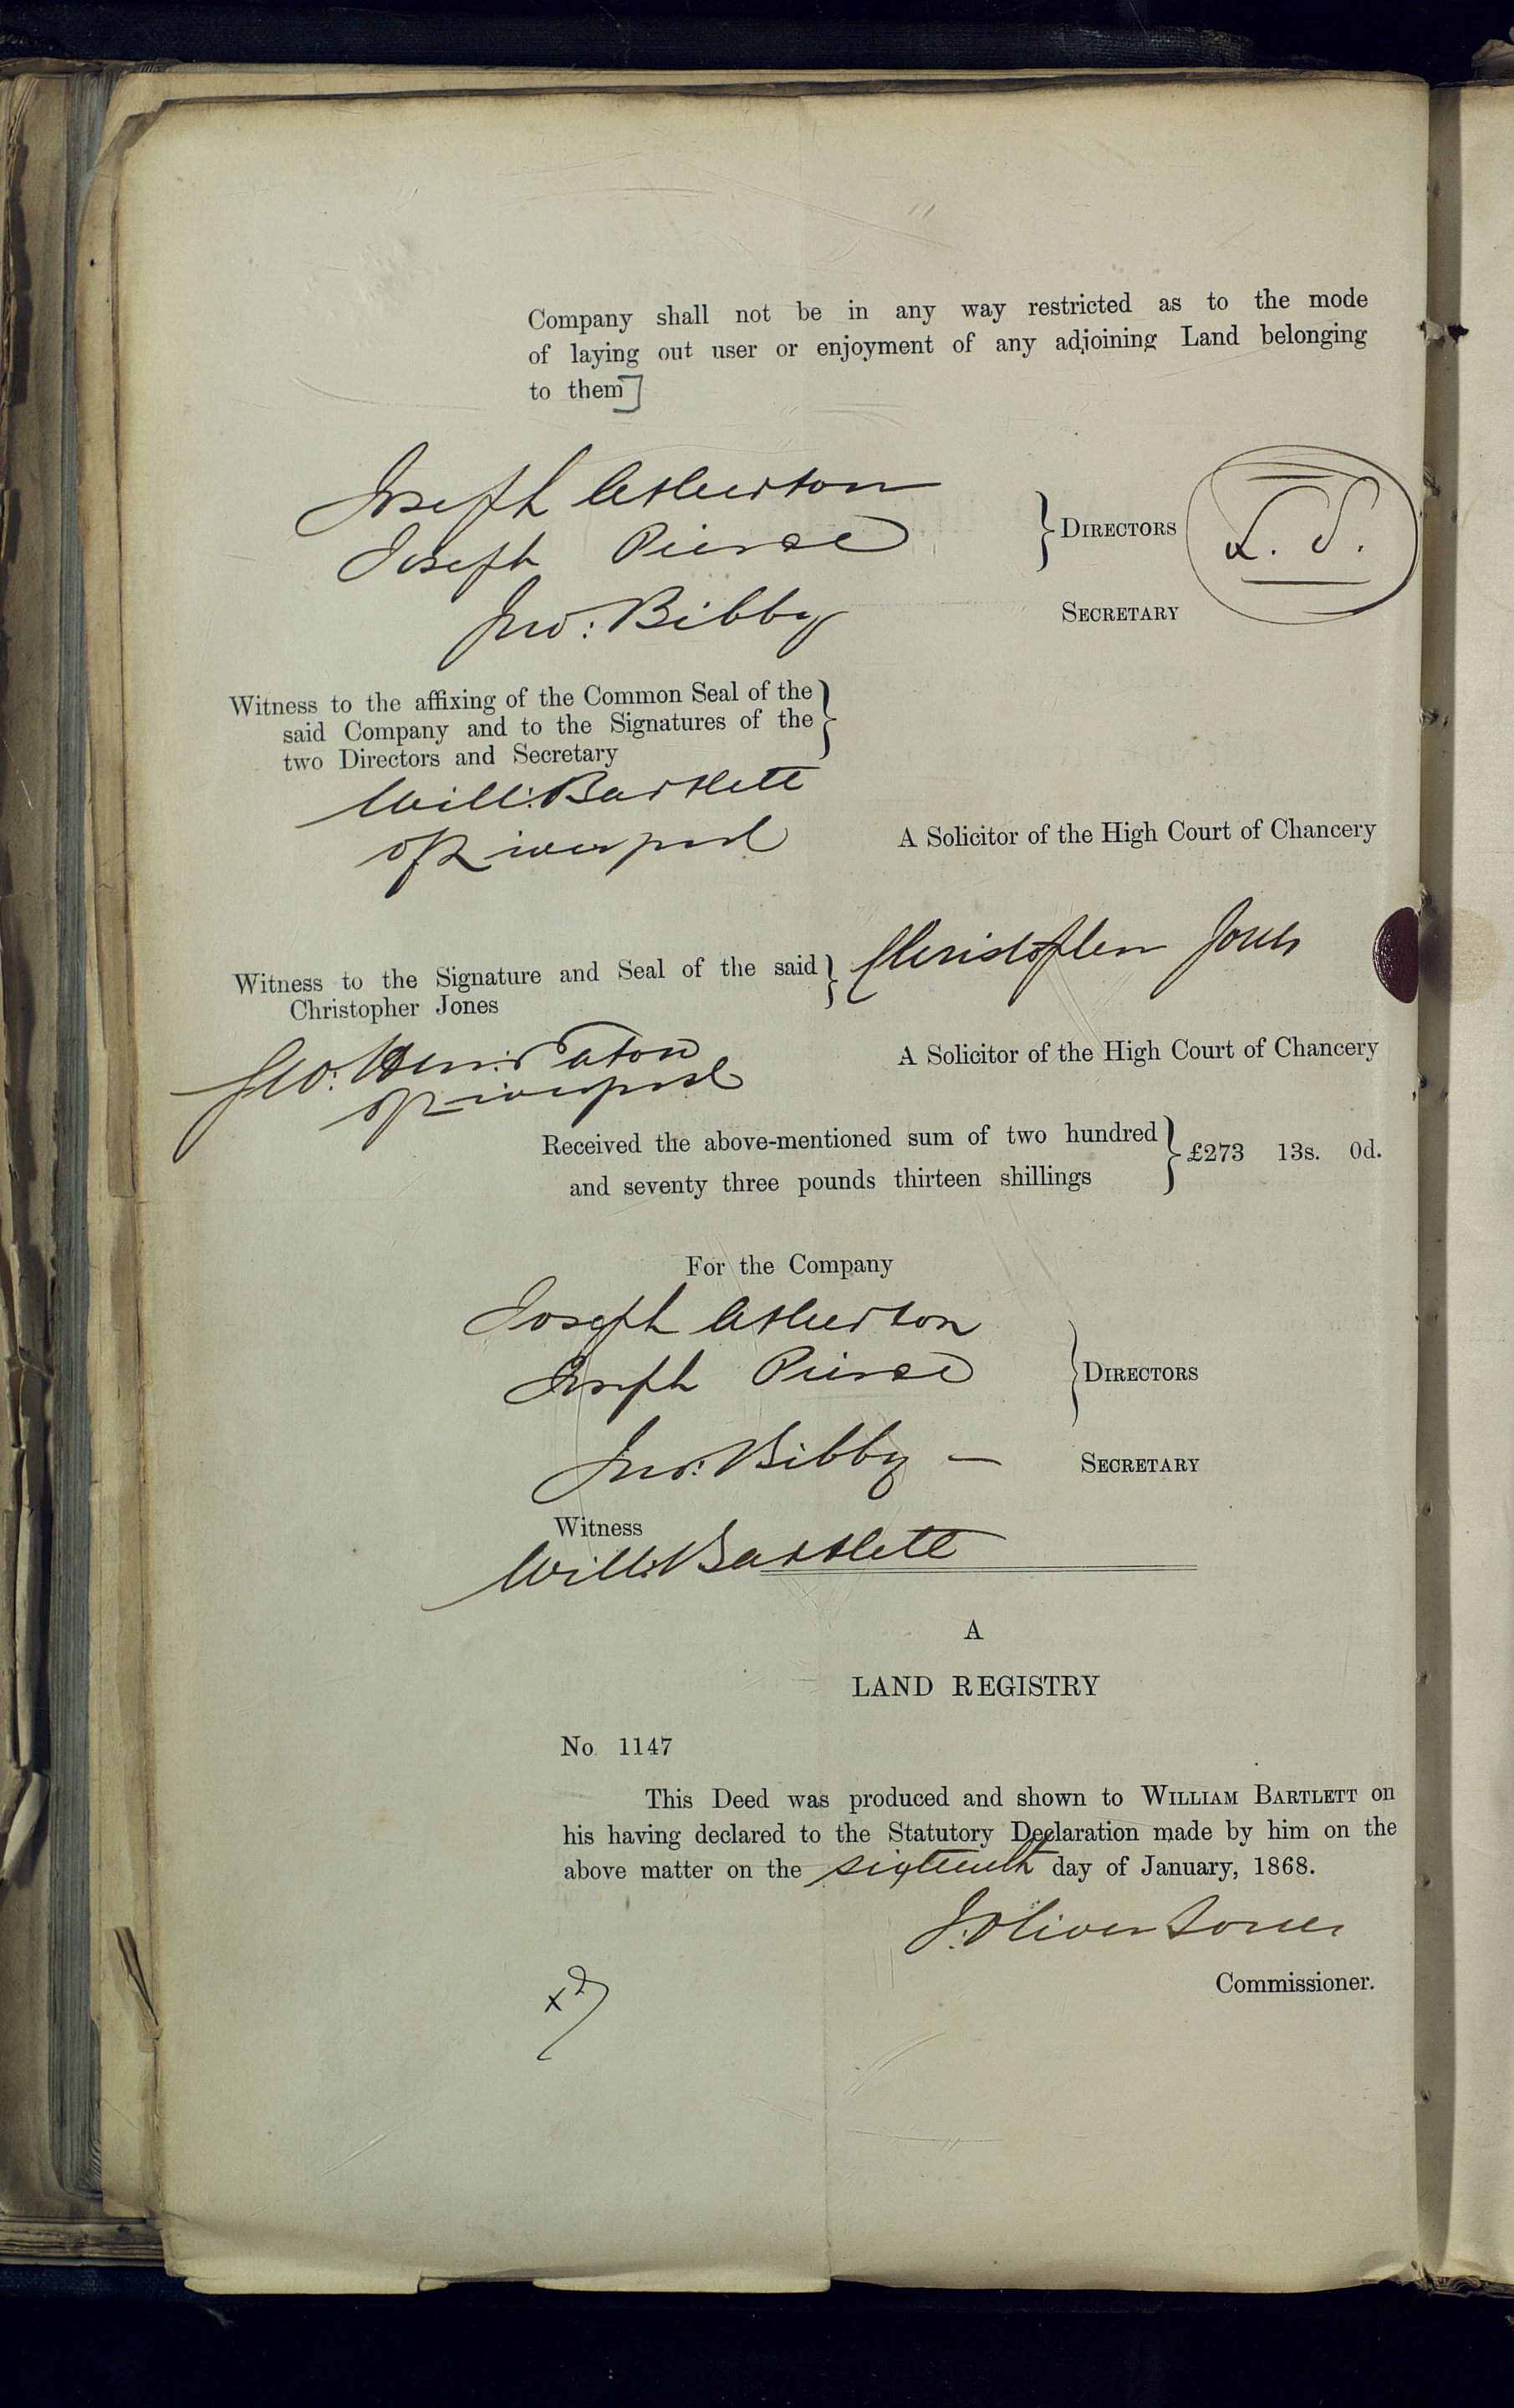 Company shall not be in any way restricted as to the mode
of laying out user or enjoyment of any adjoining Land belonging
to them]
Joseph Atherton
Joseph Pierce
} DIRECTORS
L. S.
Jno: Bibby
SECRETARY
Witness to the affixing of the Common Seal of the
said Company and to the Signatures of the
two Directors and Secretary
Will: Bartlett
of Liverpool
A Solicitor of the High Court of Chancery
Witness to the Signature and Seal of the said
Christopher Jones
Christopher Jones
Geo: Hen:
of Liverpool
A Solicitor of the High Court of Chancery
Received the above-mentioned sum of two hundred
and seventy three pounds thirteen shillings
} £273 13s. 0d.
For the Company
Joseph Atherton
Joseph Pierce
} DIRECTORS
Jno: Bibby —
SECRETARY
Witness
Will: Bartlett
A
LAND REGISTRY
No. 1147
This Deed was produced and shown to WILLIAM BARTLETT on
his having declared to the Statutory Declaration made by him on the
above matter on the sixteenth day of January, 1868.
J. Oliver Jones
Commissioner.